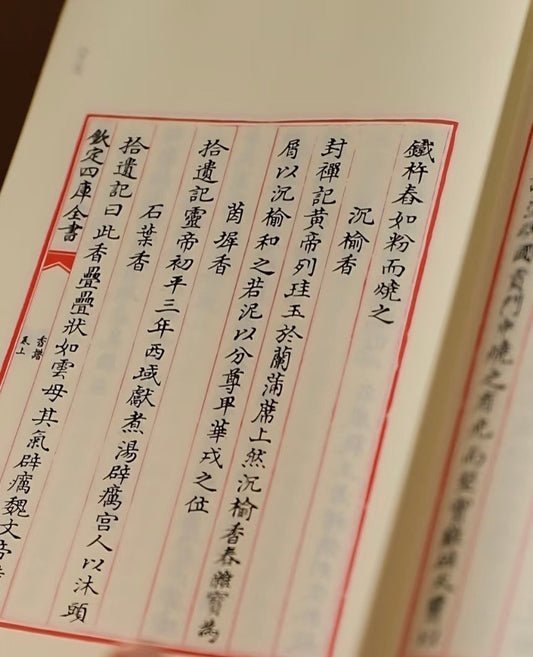 鐵杵舂如粉而燒之
沉榆香
封禪記黃帝列珪玉於蘭蒲席上然沉榆香舂雜寶為
屑以沉榆和之若泥以分尊卑華戎之位
茵墀香
拾遺記靈帝初平三年西域獻煮湯辟癘宮人以沐頭
石葉香
拾遺記曰此香疊疊狀如雲母其氣辟癘魏文帝
欽定四庫全書
香譜
卷上